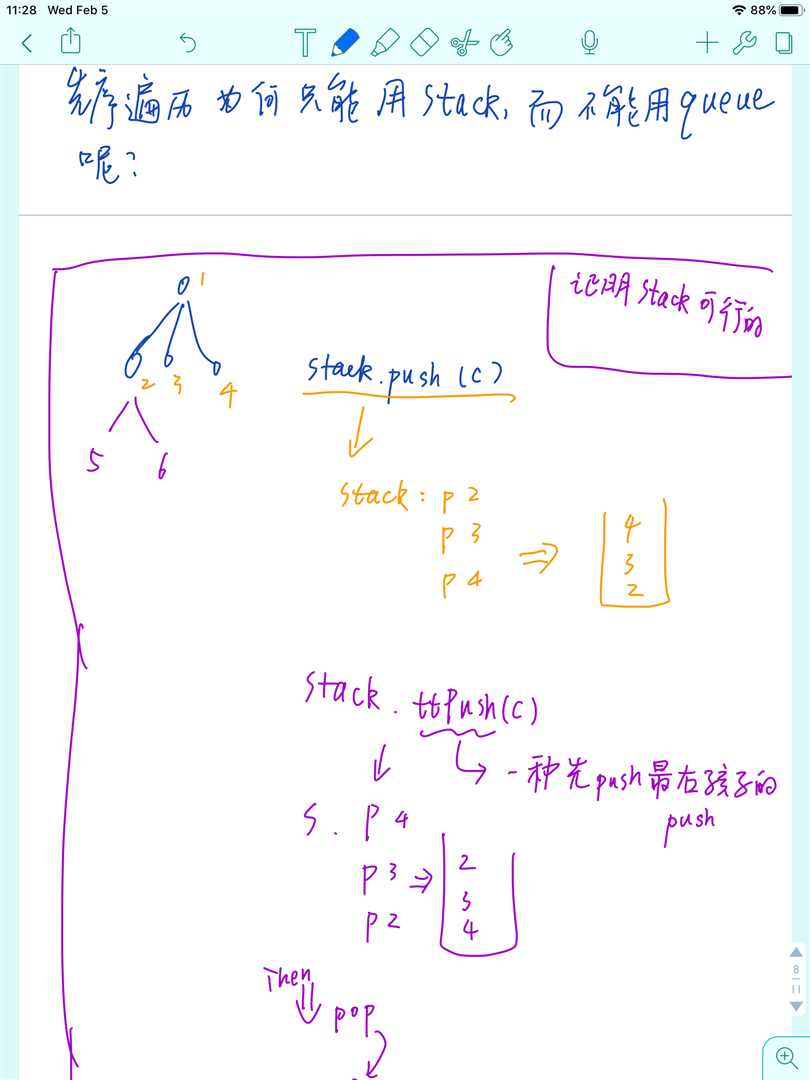 11:28 Wed Feb 5
88%
T
先序遍历为何只能用stack,而不能用queue
呢?
1
证明stack可行的
2 3 4
stack.push(c)
5 6
stack: p 2
p 3
p 4 ⇒
4
3
2
stack.ttpush(c)
→ 一种先push最右孩子的
push
s. p 4
p 3 ⇒
p 2
2
3
4
Then
pop
8
11